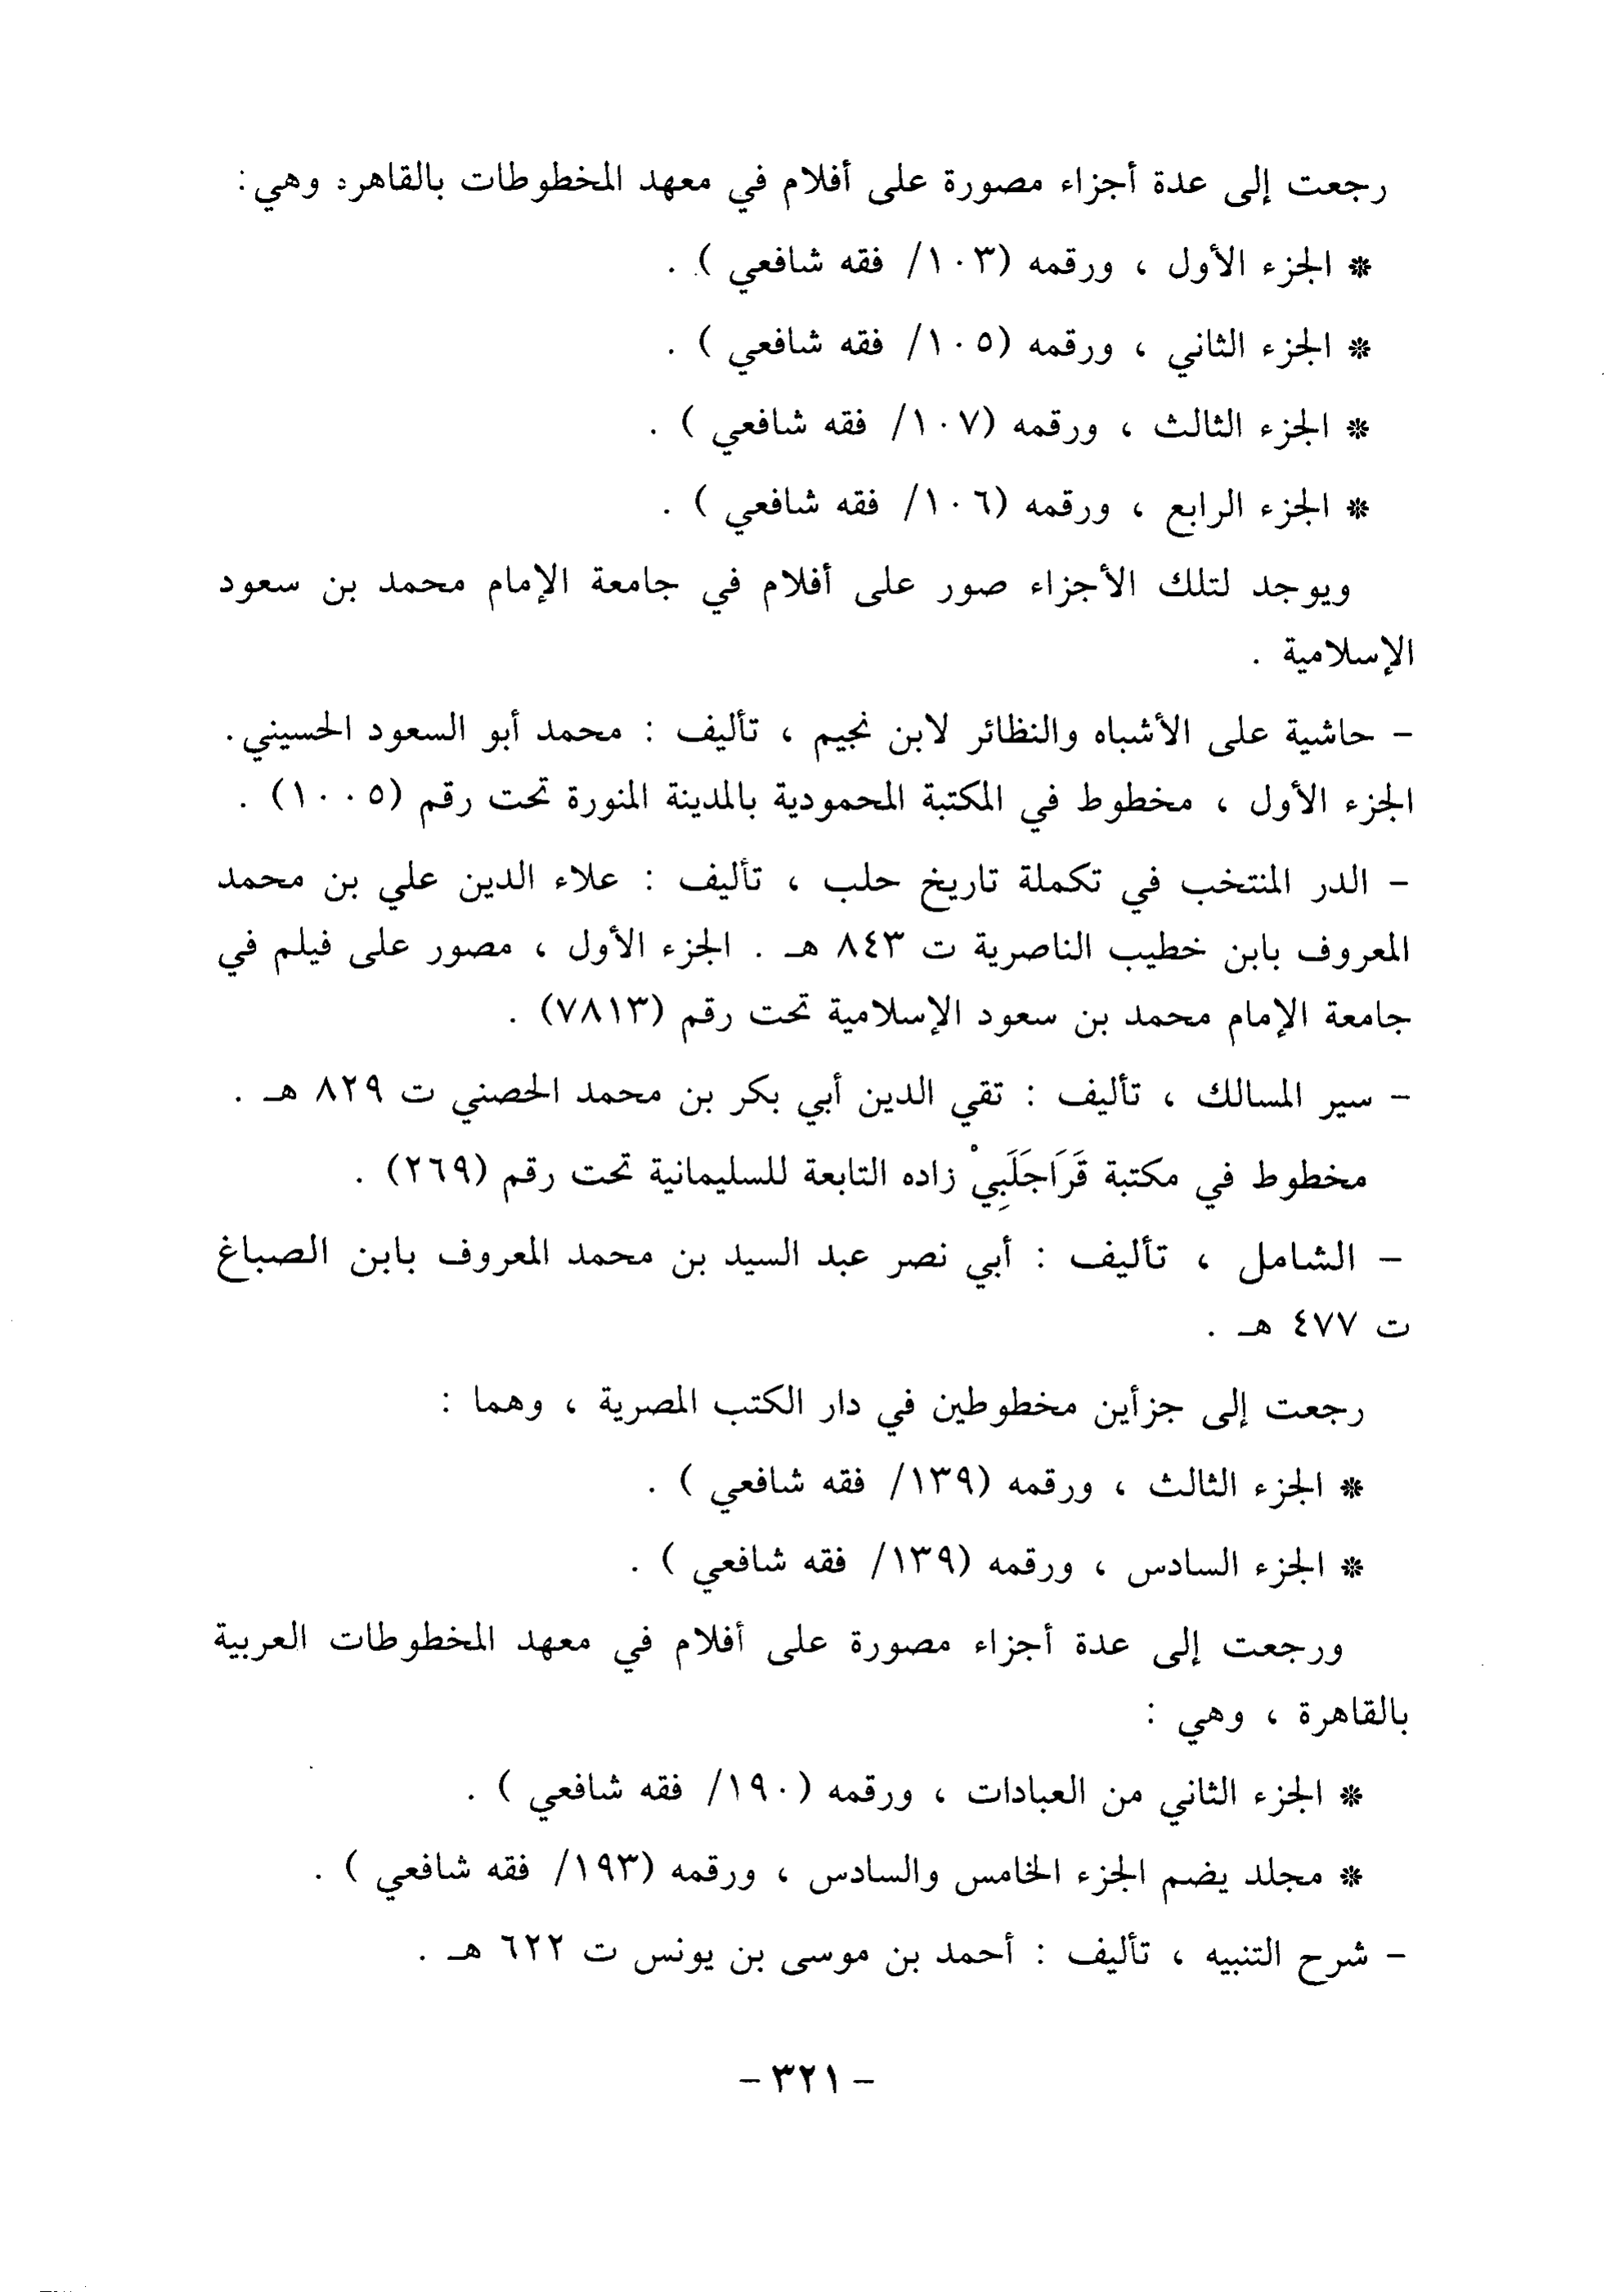 رجعت إلى عدة أجزاء مصورة على أفلام في معهد المخطوطات بالقاهرة وهي:
* الجزء الأول ، ورقمه (١٠٣/ فقه شافعي ) .
* الجزء الثاني ، ورقمه (١٠٥/ فقه شافعي ) .
* الجزء الثالث ، ورقمه (١٠٧/ فقه شافعي ) .
* الجزء الرابع ، ورقمه (١٠٦/ فقه شافعي ) .
ويوجد لتلك الأجزاء صور على أفلام في جامعة الإمام محمد بن سعود
الإسلامية .
- حاشية على الأشباه والنظائر لابن نجيم ، تأليف : محمد أبو السعود الحسيني.
الجزء الأول ، مخطوط في المكتبة المحمودية بالمدينة المنورة تحت رقم (١٠٠٥) .
- الدر المنتخب في تكملة تاريخ حلب ، تأليف : علاء الدين علي بن محمد
المعروف بابن خطيب الناصرية ت ٨٤٣ هـ . الجزء الأول ، مصور على فيلم في
جامعة الإمام محمد بن سعود الإسلامية تحت رقم (٧٨١٣) .
- سير المسالك ، تأليف : تقي الدين أبي بكر بن محمد الحصني ت ٨٢٩ هـ .
مخطوط في مكتبة قَرَاجَلَبِيْ زاده التابعة للسليمانية تحت رقم (٢٦٩) .
- الشامل ، تأليف : أبي نصر عبد السيد بن محمد المعروف بابن الصباغ
ت ٤٧٧ هـ .
رجعت إلى جزأين مخطوطين في دار الكتب المصرية ، وهما :
* الجزء الثالث ، ورقمه (١٣٩/ فقه شافعي ) .
* الجزء السادس ، ورقمه (١٣٩/ فقه شافعي ) .
ورجعت إلى عدة أجزاء مصورة على أفلام في معهد المخطوطات العربية
بالقاهرة ، وهي :
* الجزء الثاني من العبادات ، ورقمه (١٩٠/ فقه شافعي ) .
* مجلد يضم الجزء الخامس والسادس ، ورقمه (١٩٣/ فقه شافعي ) .
- شرح التنبيه ، تأليف : أحمد بن موسى بن يونس ت ٦٢٢ هـ .
- ٣٢١ -